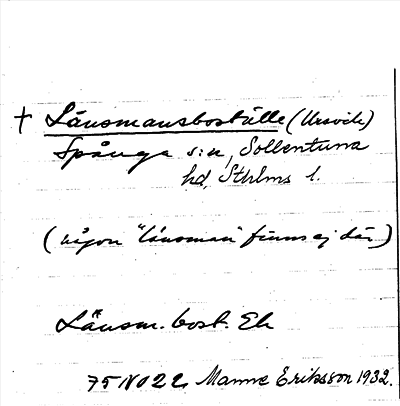 + Länsmansboställe (Ursvik)
Spånga s:n, Sollentuna
hd, Sthlms l.
(någon "länsman" finns ej där)
Länsm. bost. Ek
75 NO 22 Manne Eriksson 1932.